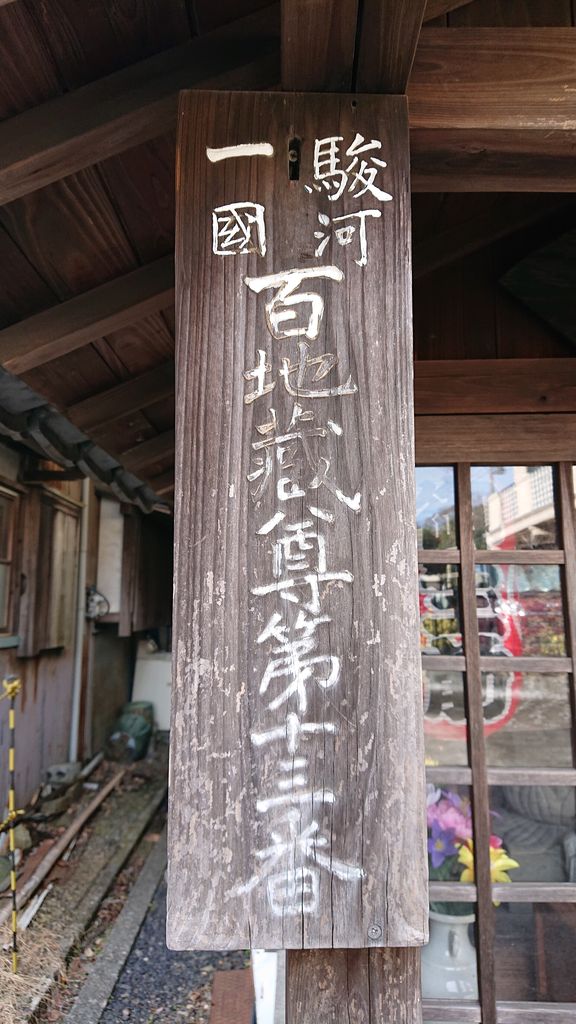 駿河
一國
百地蔵尊第十三番